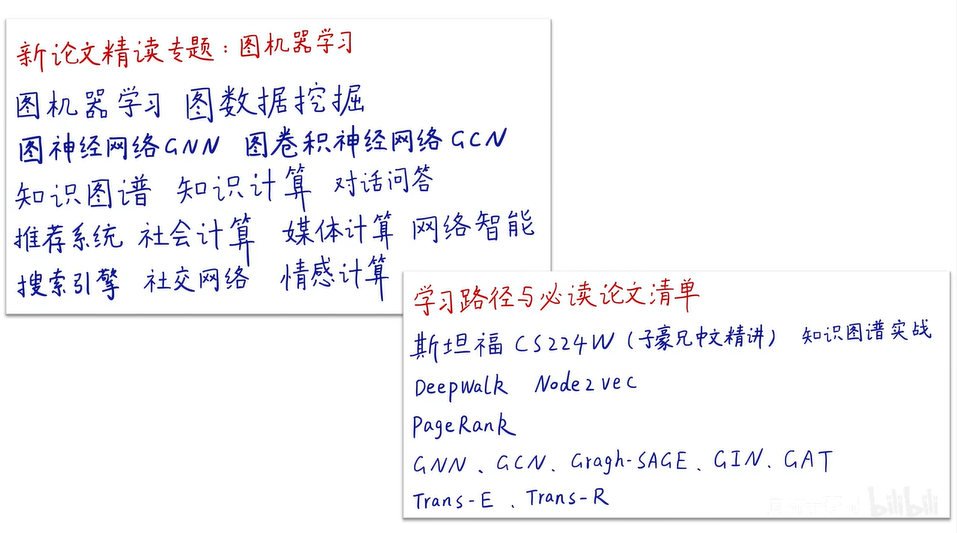 新论文精读专题：图机器学习
图机器学习 图数据挖掘
图神经网络GNN 图卷积神经网络GCN
知识图谱 知识计算 对话问答
推荐系统 社会计算 媒体计算 网络智能
搜索引擎 社交网络 情感计算
学习路径与必读论文清单
斯坦福 CS224W（子豪兄中文精讲） 知识图谱实战
DeepWalk Node2vec
PageRank
GNN、GCN、Gragh-SAGE、GIN、GAT
Trans-E、Trans-R
bilibili